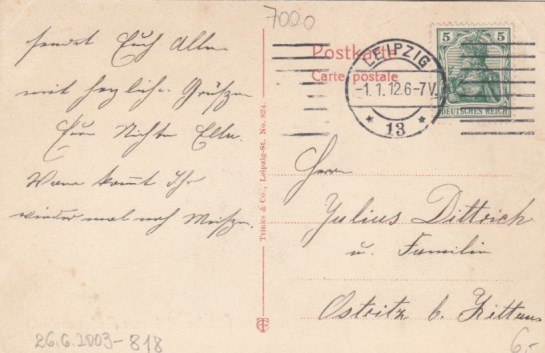 7000
sendet Euch Allen
mit herzlichen Grüßen
Eure Nichte Ella.
Wann kommt Ihr
wieder mal nach
Postkarte
Carte postale
LEIPZIG
-1.1.12.6-7V.
* 13 *
5 5
DEUTSCHES REICH
Trinks & Co., Leipzig-St. No. 824.
Herrn
Julius Dittrich
u. Familie
Ostritz b. Zittau
26.6.2003-818
6,-